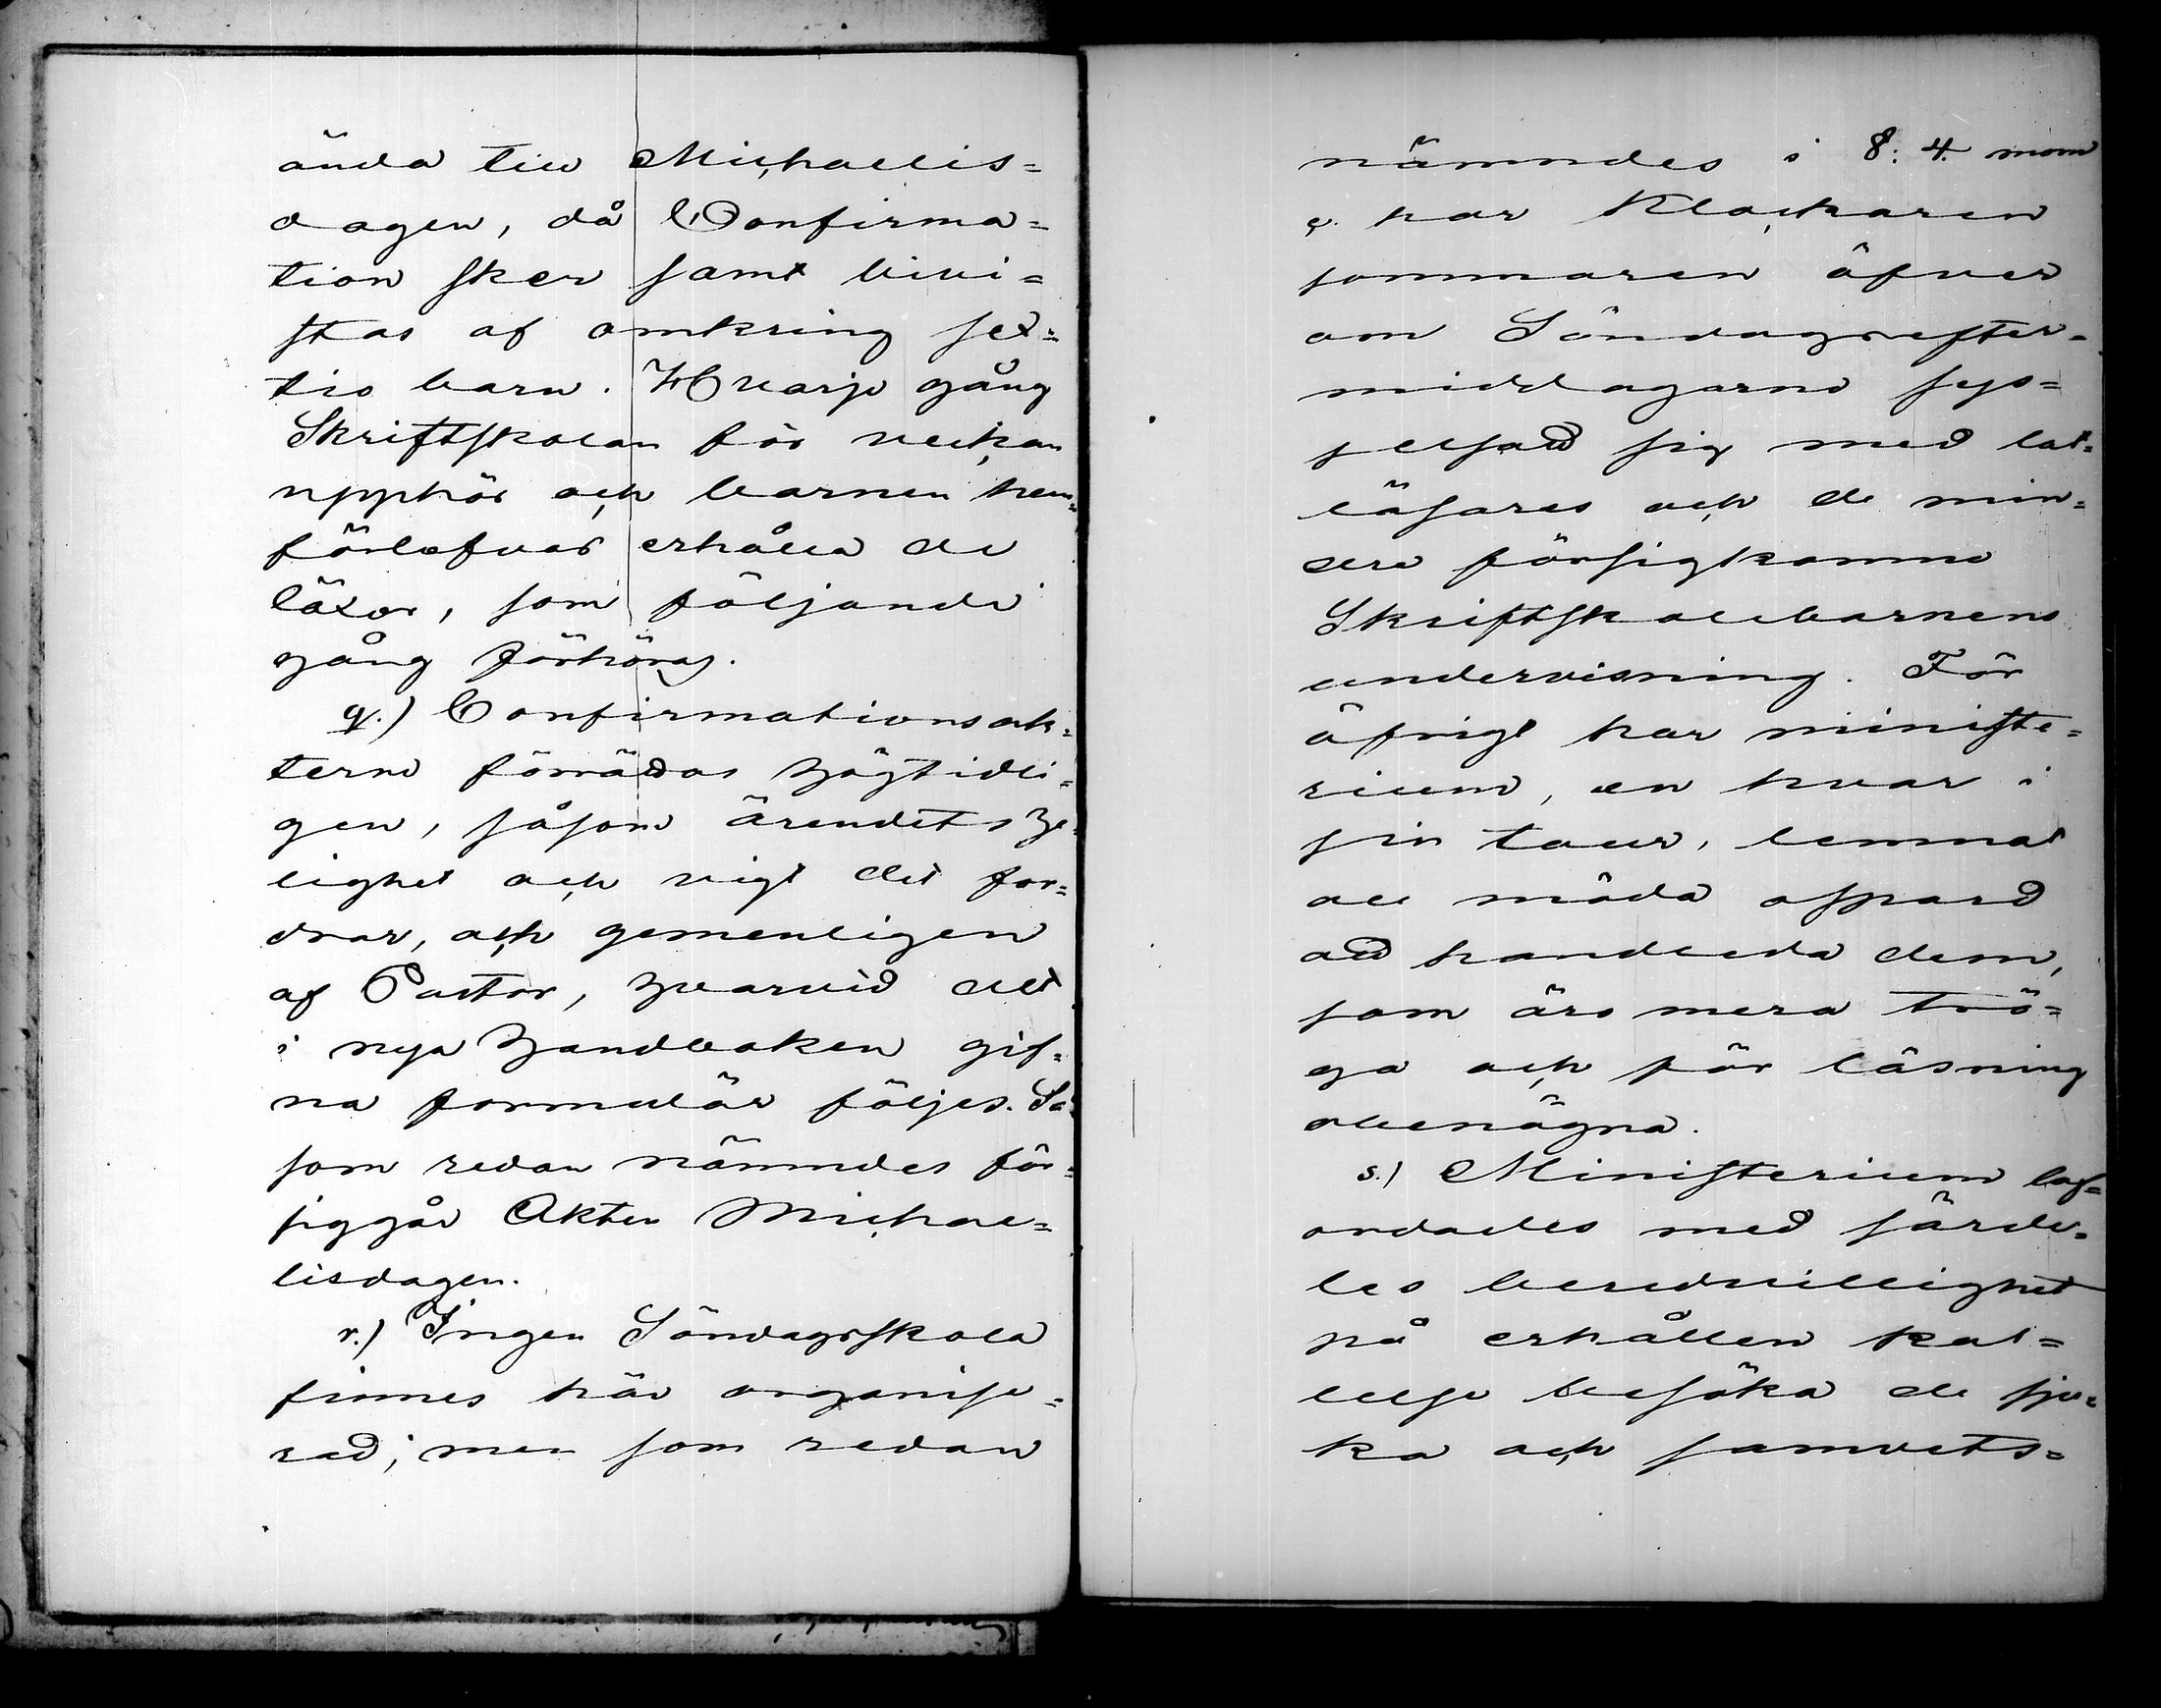 ända till Michaelis=
dagen, då Confirma=
tion sker samt bivi=
stas af omkring sex=
tio barn. Hvarje gång
Skriftskolan för veckan
upphör och barnen hem=
förlofvas erhålla de
läxor, som följande
gång förhöras.
q.) Confirmationsak=
terne förrättas högtidli=
gen, såsom ärendets he=
lighet och vigt det for=
drar, och gemenligen
af Pastor, hvarvid det
i nya handboken gif=
na formulär följes. Så
som redan nämndes för=
siggår Akten Michae=
lisdagen.
r.) Ingen Söndagsskola
finnes här organise=
rad; men som redan
nämndes i 8: 4. mom
c. har Klockaren
sommaren öfver
om Söndagsefter=
middagarne sys=
selsatt sig med lat=
läsares och de min=
dre försigkomne
Skriftskolebarnens
undervisning. För
öfrigt har ministe=
rium, en hvar i
sin tour, lemnat
all möda ospard
att handleda dem,
som äro mera trö=
ga och för läsning
obenägna.
s.) Ministerium laf=
ordades med särde=
les beredvillighet
på erhållen kal=
lelse besöka de sju=
ka och samvets=